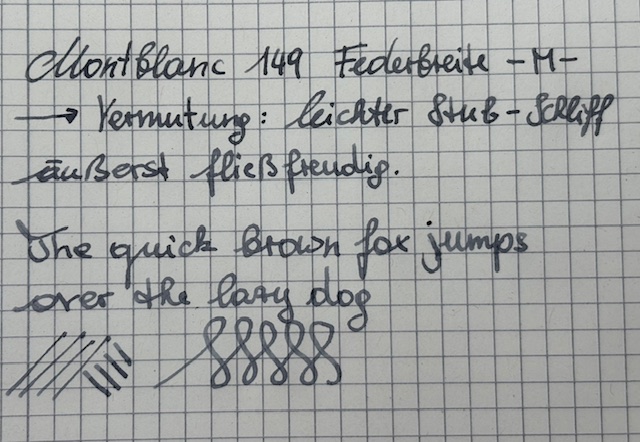 Montblanc 149 Federbreite -M-
→ Vermutung: leichter Stub-Schliff
äußerst fließfreudig.
The quick brown fox jumps
over the lazy dog